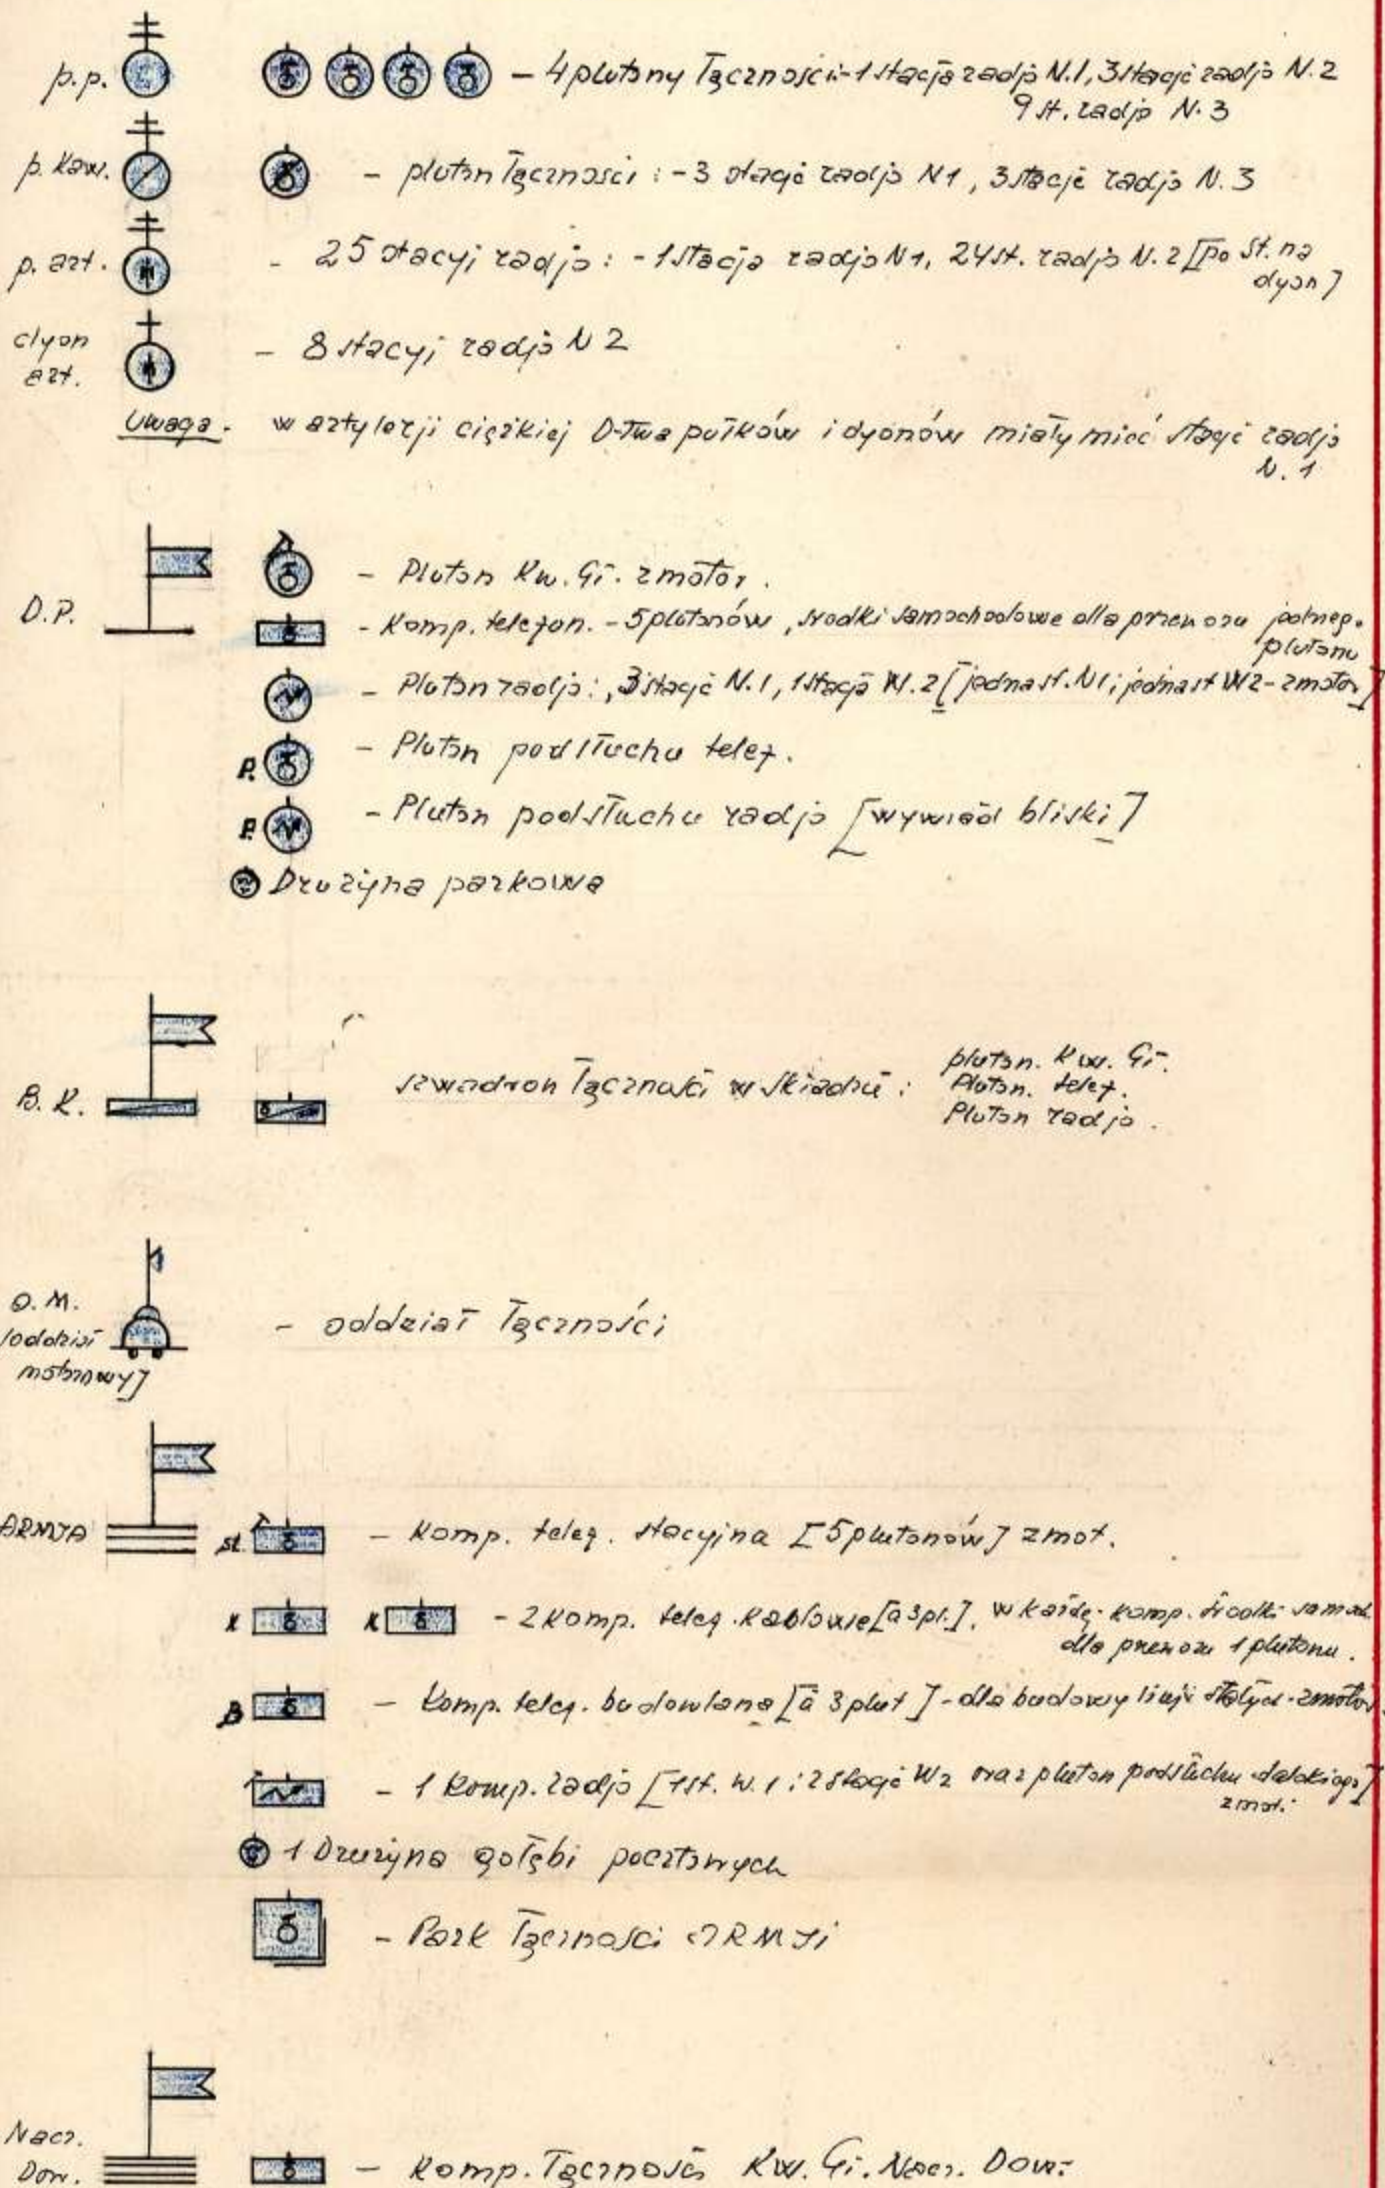 p.p. – 4 plutony łączności - 1 stacja radjo N.1, 3 stacje radjo N.2
9 st. radjo N.3
p. Kaw. – pluton łączności : - 3 stacje radjo N1, 3 stacje radjo N.3
p. art. - 25 stacyj radjo : - 1 stacja radjo N1, 24 st. radjo N.2 [po st. na
dyon]
dyon
art. – 8 stacyj radjo N2
Uwaga - w artylerji ciężkiej D-twa pułków i dyonów miały mieć stacje radjo
N.1
D.P.
– Pluton Kw. Gł. zmotor.
- Komp. telefon. - 5 plutonów, środki samochodowe dla przewozu jednego
plutonu
– Pluton radjo : , 3 stacje N.1, 1 stacja W.2 [jedna st. N1 i jedna st W2 - zmotor]
P. – Pluton podsłuchu telef.
P. – Pluton podsłuchu radjo [wywiad bliski]
Drużyna parkowa
B.K. szwadron łączności w składzie :
pluton. Kw. Gł.
Pluton. telef.
Pluton radjo.
O.M.
[oddział
motorowy]
– oddział łączności
ARMJA
st. – Komp. teleg. stacyjna [5 plutonów] zmot.
K K – 2 komp. teleg. kablowe [à 3 pl.], w każdej komp. środki samoch.
dla przewozu 1 plutonu.
B – Komp. teleg. budowlana [à 3 plut] - dla budowy linji stałych - zmotor.
– 1 Komp. radjo [1 st. W.1 i 2 stacje W2 oraz pluton podsłuchu dalekiego]
zmot.
1 Drużyna gołębi pocztowych
– Park łączności ARMJi
Nacz.
Dow. – Komp. łączności Kw. Gł. Nacz. Dow.